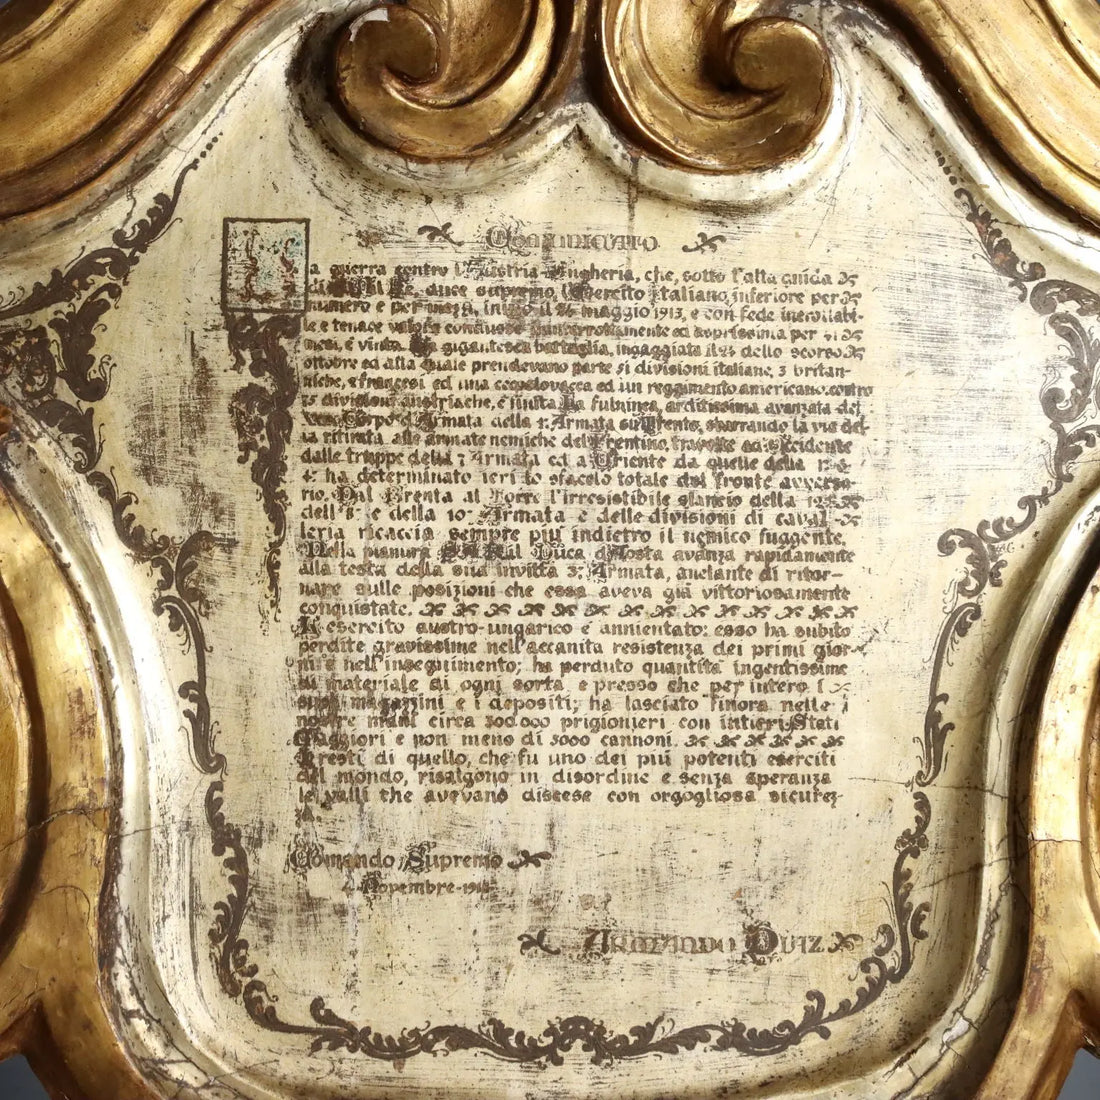 Comunicato
La guerra contro l'Austria-Ungheria, che, sotto l'alta guida
di S.M. il Re, duce supremo, l'Esercito Italiano, inferiore per
numero e per mezzi, iniziò il 24 maggio 1915, e con fede incrollabi-
le e tenace valore condusse ininterrottamente ed asprissima per 41
mesi, è vinta. La gigantesca battaglia, ingaggiata il 24 dello scorso
ottobre ed alla quale prendevano parte 51 divisioni italiane, 3 britan-
niche, 2 francesi ed una cecoslovacca ed un reggimento americano, contro
75 divisioni austriache, è finita. La fulminea, arditissima avanzata del
Corpo d'Armata della 1ª Armata su Trento, sbarrando la vie del-
la ritirata alle armate nemiche del Trentino, travolte ad Occidente
dalle truppe della 7 Armata ed a Oriente da quelle della 1ª
4ª ha determinato ieri lo sfacelo totale del fronte avversa-
rio. Dal Brenta al Torre l'irresistibile slancio della 12ª
dell'8ª e della 10ª Armata e delle divisioni di caval-
leria ricaccia sempre più indietro il nemico fuggente.
Nella pianura S.A.R. il Duca d'Aosta avanza rapidamente
alla testa della sua invitta 3ª Armata, anelante di ritor-
nare sulle posizioni che essa aveva già vittoriosamente
conquistate.
L'esercito austro-ungarico è annientato: esso ha subito
perdite gravissime nell'accanita resistenza dei primi gior-
ni e nell'inseguimento; ha perduto quantità ingentissime
di materiale di ogni sorta e presso che per intero i
suoi magazzini e i depositi; ha lasciato finora nelle
nostre mani circa 300.000 prigionieri con intieri Stati
Maggiori e non meno di 5000 cannoni.
I resti di quello, che fu uno dei più potenti eserciti
del mondo, risalgono in disordine e senza speranza
le valli che avevano discese con orgogliosa sicurez-
za.
Comando Supremo
4 Novembre-1918
Armando Diaz